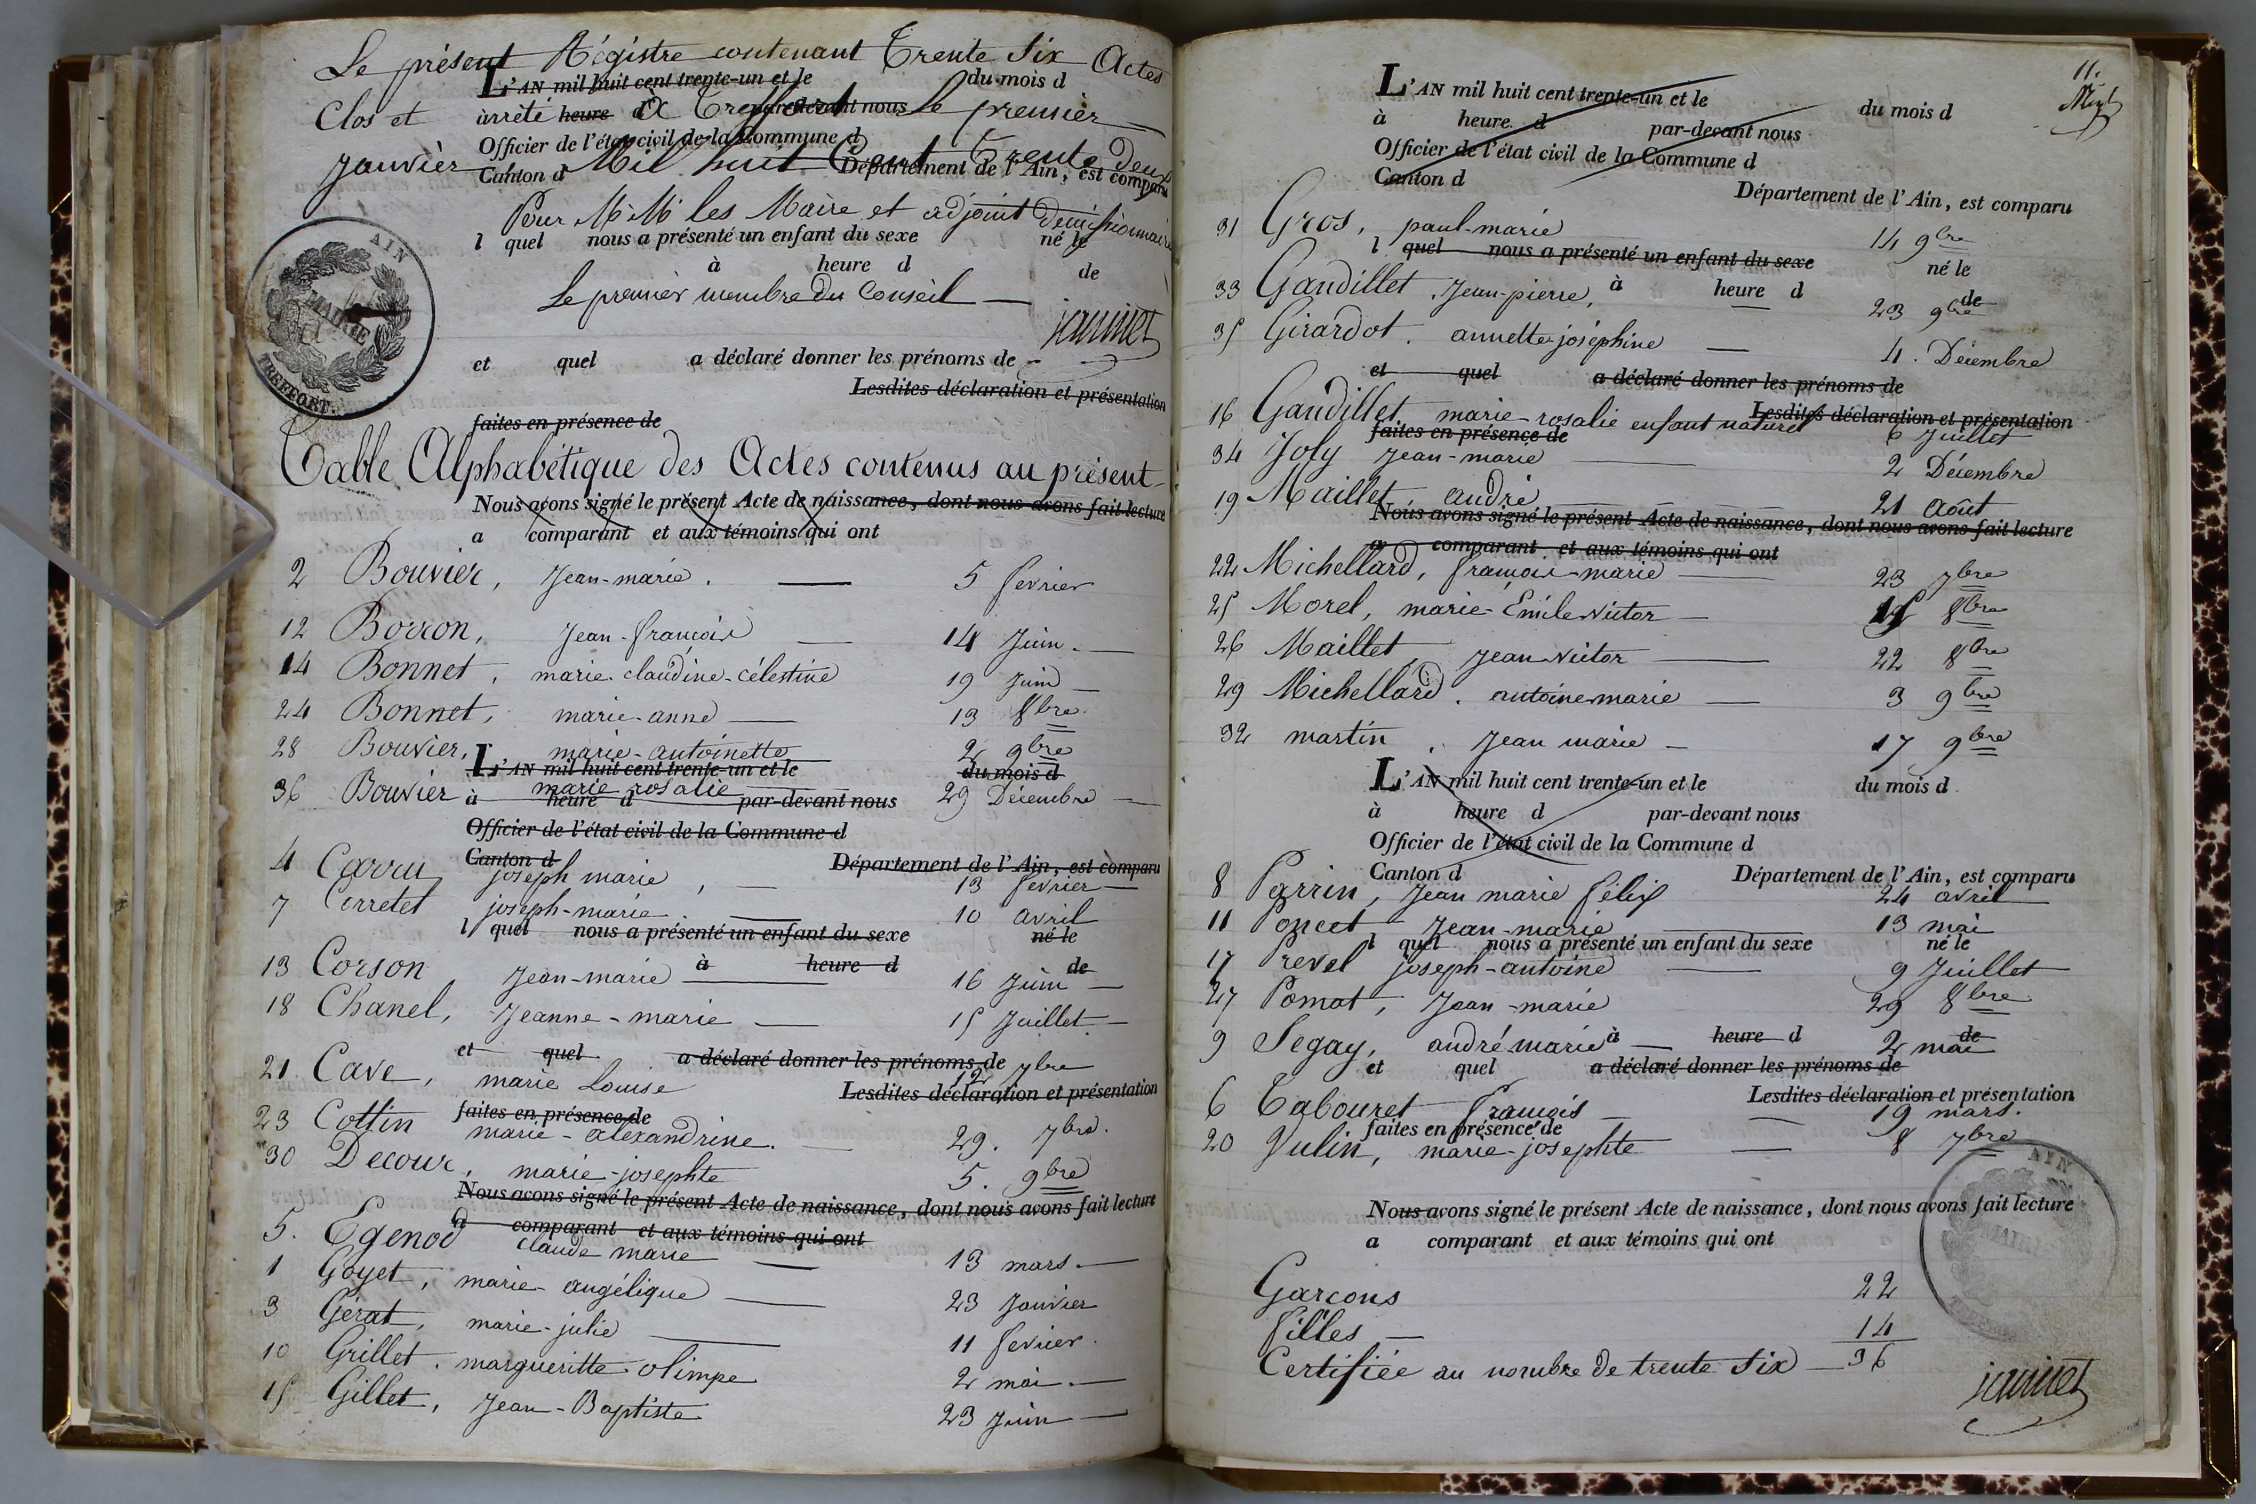 Le présent Régistre contenant Trente Six Actes
L'AN mil huit cent trente-un et le du mois d
Clos et arrêté heure d A Treffort par-devant nous Le premier
Officier de l'état civil de la Commune d
janvier Canton d Mil huit Cent Trente Deux
Département de l'Ain, est comparu
Pour MM les Maire et adjoint demissionnaires
l quel nous a présenté un enfant du sexe né le
à heure d de
Le premier membre Du Conseil
janinet
AIN
MAIRIE
TREFFORT
et quel a déclaré donner les prénoms de
Lesdites déclaration et présentation
faites en présence de
Table Alphabétique des Actes contenus au présent
Nous avons signé le présent Acte de naissance, dont nous avons fait lecture
a comparant et aux témoins qui ont
2 Bouvier, Jean-marie. 5 fevrier
12 Borron, Jean-francois 14 Juin
14 Bonnet, marie-claudine-célestine 19 Juin
24 Bonnet, marie-anne 13 8bre
28 Bouvier, marie-antoinette 2 9bre
L'AN mil huit cent trente-un et le du mois d
36 Bouvier marie rosalie 29 Décembre
à heure d par-devant nous
Officier de l'état civil de la Commune d
Canton d Département de l'Ain, est comparu
4 Carru joseph marie, 13 fevrier
7 Cerretet joseph-marie 10 avril
l quel nous a présenté un enfant du sexe né le
à heure d de
13 Corson Jean-marie 16 Juin
18 Chanel, Jeanne-marie 15 Juillet
et quel a déclaré donner les prénoms de
21 Cave, marie Louise 12 7bre
Lesdites déclaration et présentation
faites en présence de
23 Cottin marie-alexandrine. 29. 7bre.
30 Decour, marie-josephte 5. 9bre
Nous avons signé le présent Acte de naissance, dont nous avons fait lecture
a comparant et aux témoins qui ont
5. Egenod claude marie 13 mars
1 Goyet, marie-angélique 23 Janvier
3 Gérat, marie-julie 11 fevrier
10 Grillet. margueritte olimpe 2 mai
15 Gillet, Jean-Baptiste 23 Juin
11.
L'AN mil huit cent trente-un et le du mois d
à heure d par-devant nous
Officier de l'état civil de la Commune d
Canton d Département de l'Ain, est comparu
31 Gros, paul-marie 14 9bre
l quel nous a présenté un enfant du sexe né le
33 Gaudillet, Jean-pierre, 23 9bre
à heure d de
35 Girardot. annette-joséphine 4. Décembre
et quel a déclaré donner les prénoms de
16 Gaudillet marie-rosalie enfant naturel 6 Juillet
Lesdites déclaration et présentation
faites en présence de
34 Joly Jean-marie 2 Décembre
19 Maillet, andré 21 Août
Nous avons signé le présent Acte de naissance, dont nous avons fait lecture
a comparant et aux témoins qui ont
22 Michellard, françois-marie 23 7bre
25 Morel, marie-Emile victor 15 8bre
26 Maillet, Jean victor 22 8bre
29 Michellard. antoine marie 3 9bre
32 martin, Jean marie 17 9bre
L'AN mil huit cent trente-un et le du mois d
à heure d par-devant nous
Officier de l'état civil de la Commune d
Canton d Département de l'Ain, est comparu
8 Perrin, Jean marie félix 24 avril
11 Poncet Jean-marie 13 mai
l quel nous a présenté un enfant du sexe né le
17 Prevel joseph-antoine 9 Juillet
27 Pomat, Jean-marie 29 8bre
à heure d de
9 Segay, andré marie 2 mai
et quel a déclaré donner les prénoms de
Lesdites déclaration et présentation
6 Tabouret françois 19 mars.
faites en présence de
20 Vulin, marie-josephte 8 7bre
AIN
MAIRIE
Nous avons signé le présent Acte de naissance, dont nous avons fait lecture
a comparant et aux témoins qui ont
Garcons 22
filles 14
Certifiée au nombre de trente Six 36
janinet